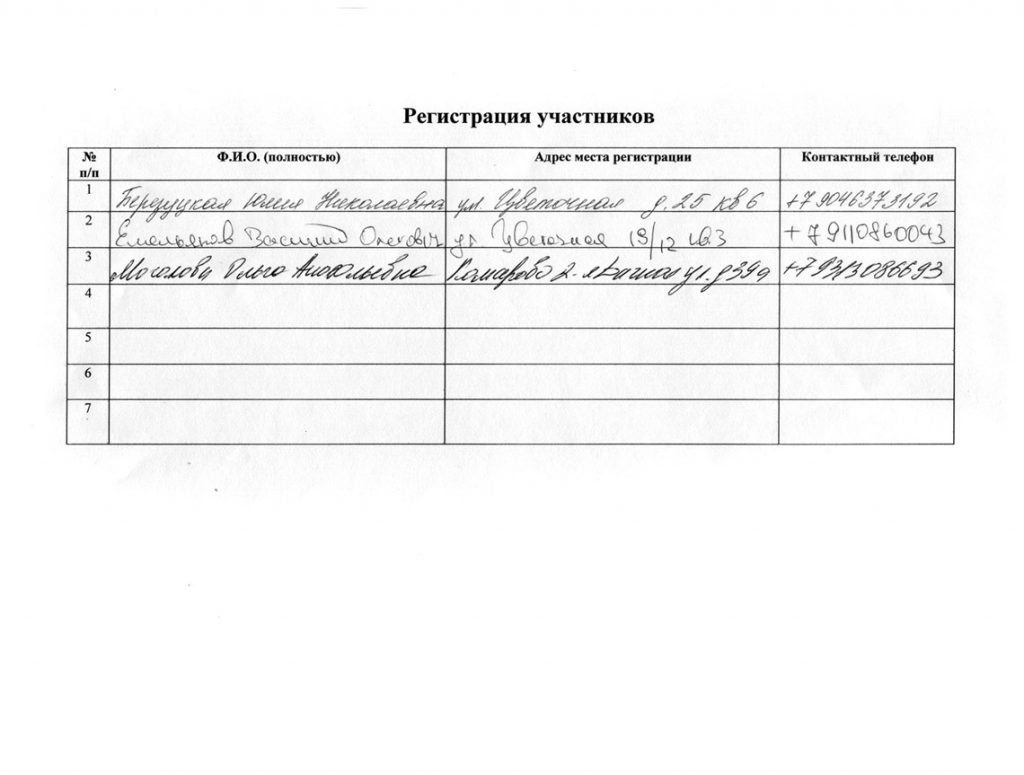 Регистрация участников
№ п/п Ф.И.О. (полностью) Адрес места регистрации Контактный телефон
1 Юлия Николаевна ул. Цветочная д. 25 кв 6 +79046373192
2 Емельянов Василий Олегович ул Цветочная 19/12 кв.3 +79110860043
3 Ольга Анатольевна Комарово 2-я ул. д 39а +79313086693
4
5
6
7